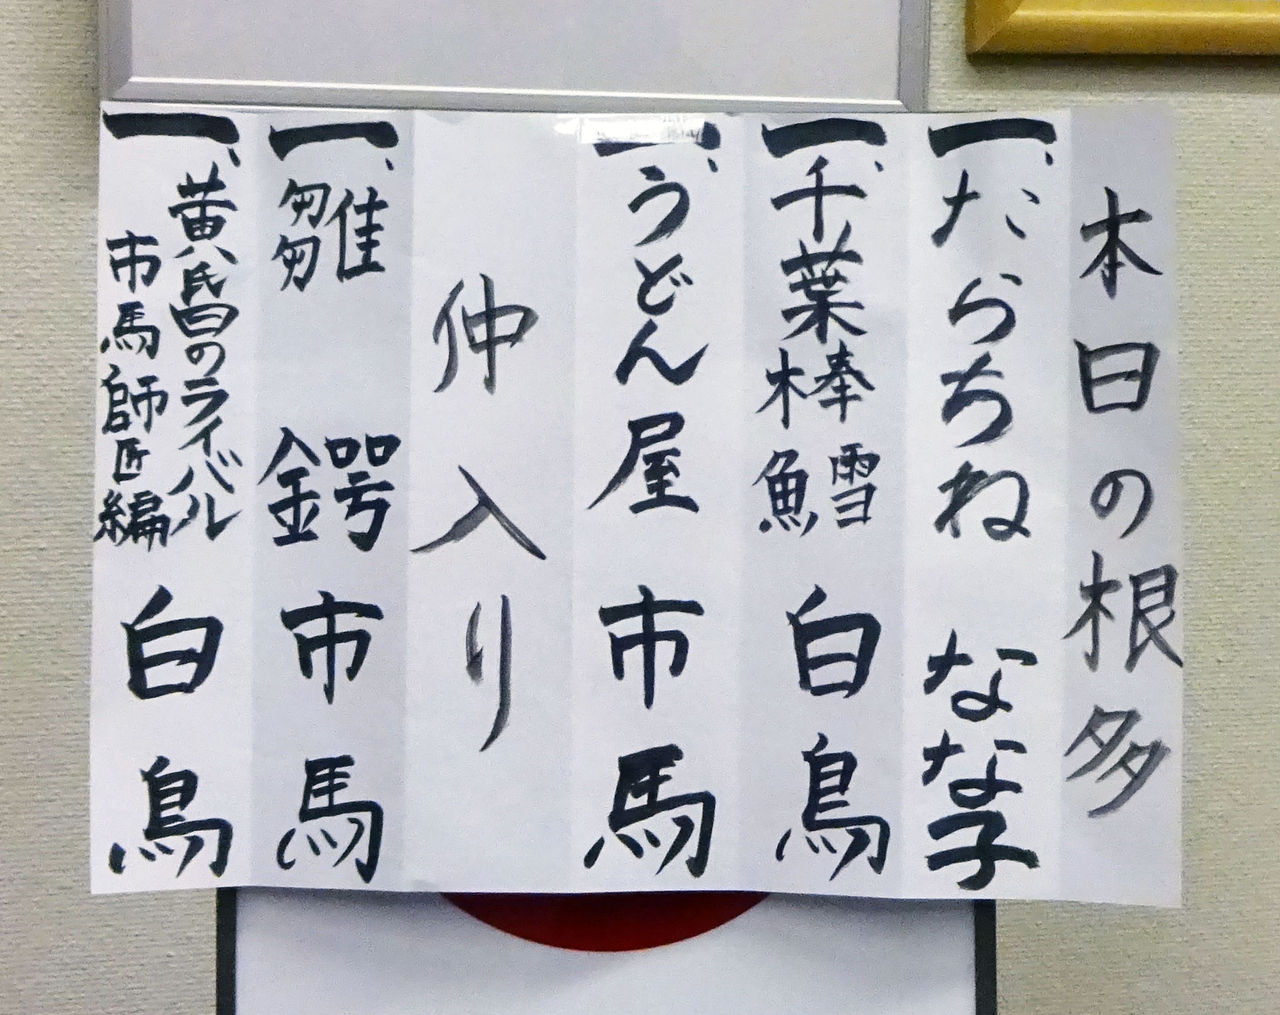 本日の根多
一、たらちね なな子
一、千葉棒鱈 白鳥
一、うどん屋 市馬
仲入り
一、雛鍔 市馬
一、黄昏のライバル
市馬師匠編 白鳥